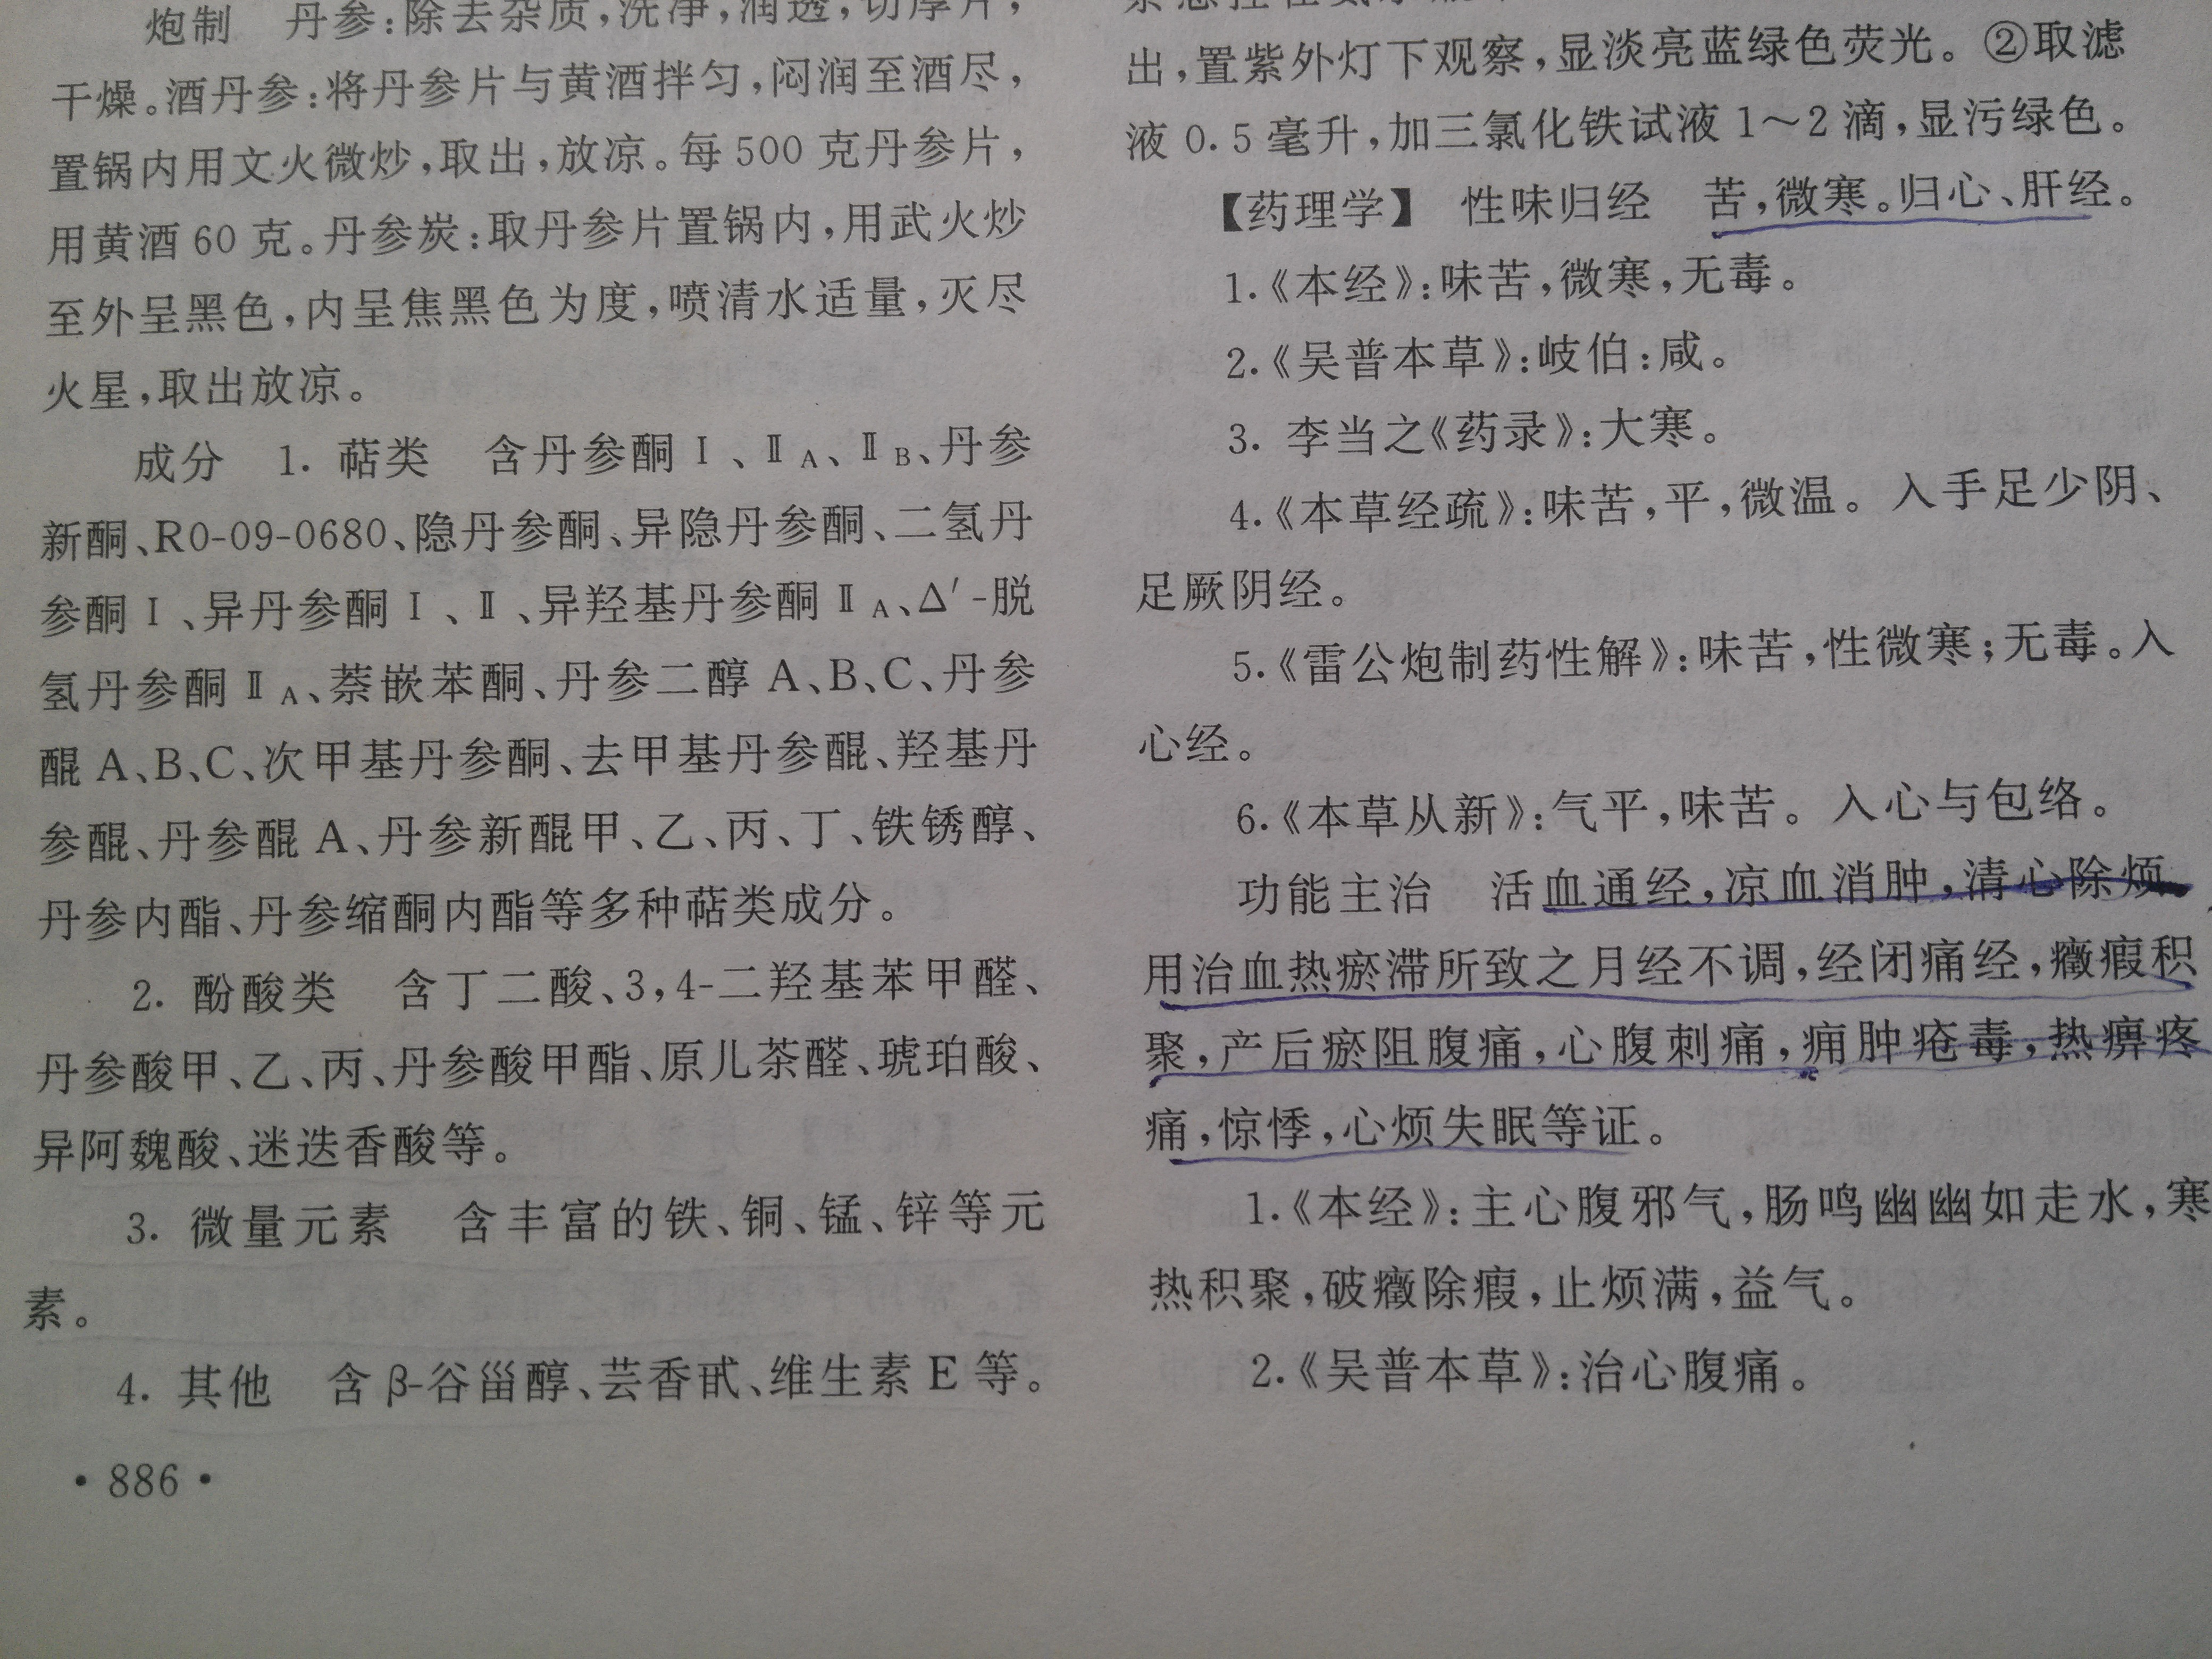 炮制　丹参:除去杂质,洗净,润透,切厚片,
干燥。酒丹参:将丹参片与黄酒拌匀,闷润至酒尽,
置锅内用文火微炒,取出,放凉。每500克丹参片,
用黄酒60克。丹参炭:取丹参片置锅内,用武火炒
至外呈黑色,内呈焦黑色为度,喷清水适量,灭尽
火星,取出放凉。
成分　1. 萜类　含丹参酮Ⅰ、ⅡA、ⅡB、丹参
新酮、R0-09-0680、隐丹参酮、异隐丹参酮、二氢丹
参酮Ⅰ、异丹参酮Ⅰ、Ⅱ、异羟基丹参酮ⅡA、Δ′-脱
氢丹参酮ⅡA、萘嵌苯酮、丹参二醇A、B、C、丹参
醌A、B、C、次甲基丹参酮、去甲基丹参醌、羟基丹
参醌、丹参醌A、丹参新醌甲、乙、丙、丁、铁锈醇、
丹参内酯、丹参缩酮内酯等多种萜类成分。
2. 酚酸类　含丁二酸、3,4-二羟基苯甲醛、
丹参酸甲、乙、丙、丹参酸甲酯、原儿茶醛、琥珀酸、
异阿魏酸、迷迭香酸等。
3. 微量元素　含丰富的铁、铜、锰、锌等元
素。
4. 其他　含β-谷甾醇、芸香甙、维生素E等。
·886·
出,置紫外灯下观察,显淡亮蓝绿色荧光。②取滤
液0.5毫升,加三氯化铁试液1～2滴,显污绿色。
【药理学】　性味归经　苦,微寒。归心、肝经。
1.《本经》:味苦,微寒,无毒。
2.《吴普本草》:岐伯:咸。
3. 李当之《药录》:大寒。
4.《本草经疏》:味苦,平,微温。入手足少阴、
足厥阴经。
5.《雷公炮制药性解》:味苦,性微寒;无毒。入
心经。
6.《本草从新》:气平,味苦。入心与包络。
功能主治　活血通经,凉血消肿,清心除烦。
用治血热瘀滞所致之月经不调,经闭痛经,癥瘕积
聚,产后瘀阻腹痛,心腹刺痛,痈肿疮毒,热痹疼
痛,惊悸,心烦失眠等证。
1.《本经》:主心腹邪气,肠鸣幽幽如走水,寒
热积聚,破癥除瘕,止烦满,益气。
2.《吴普本草》:治心腹痛。